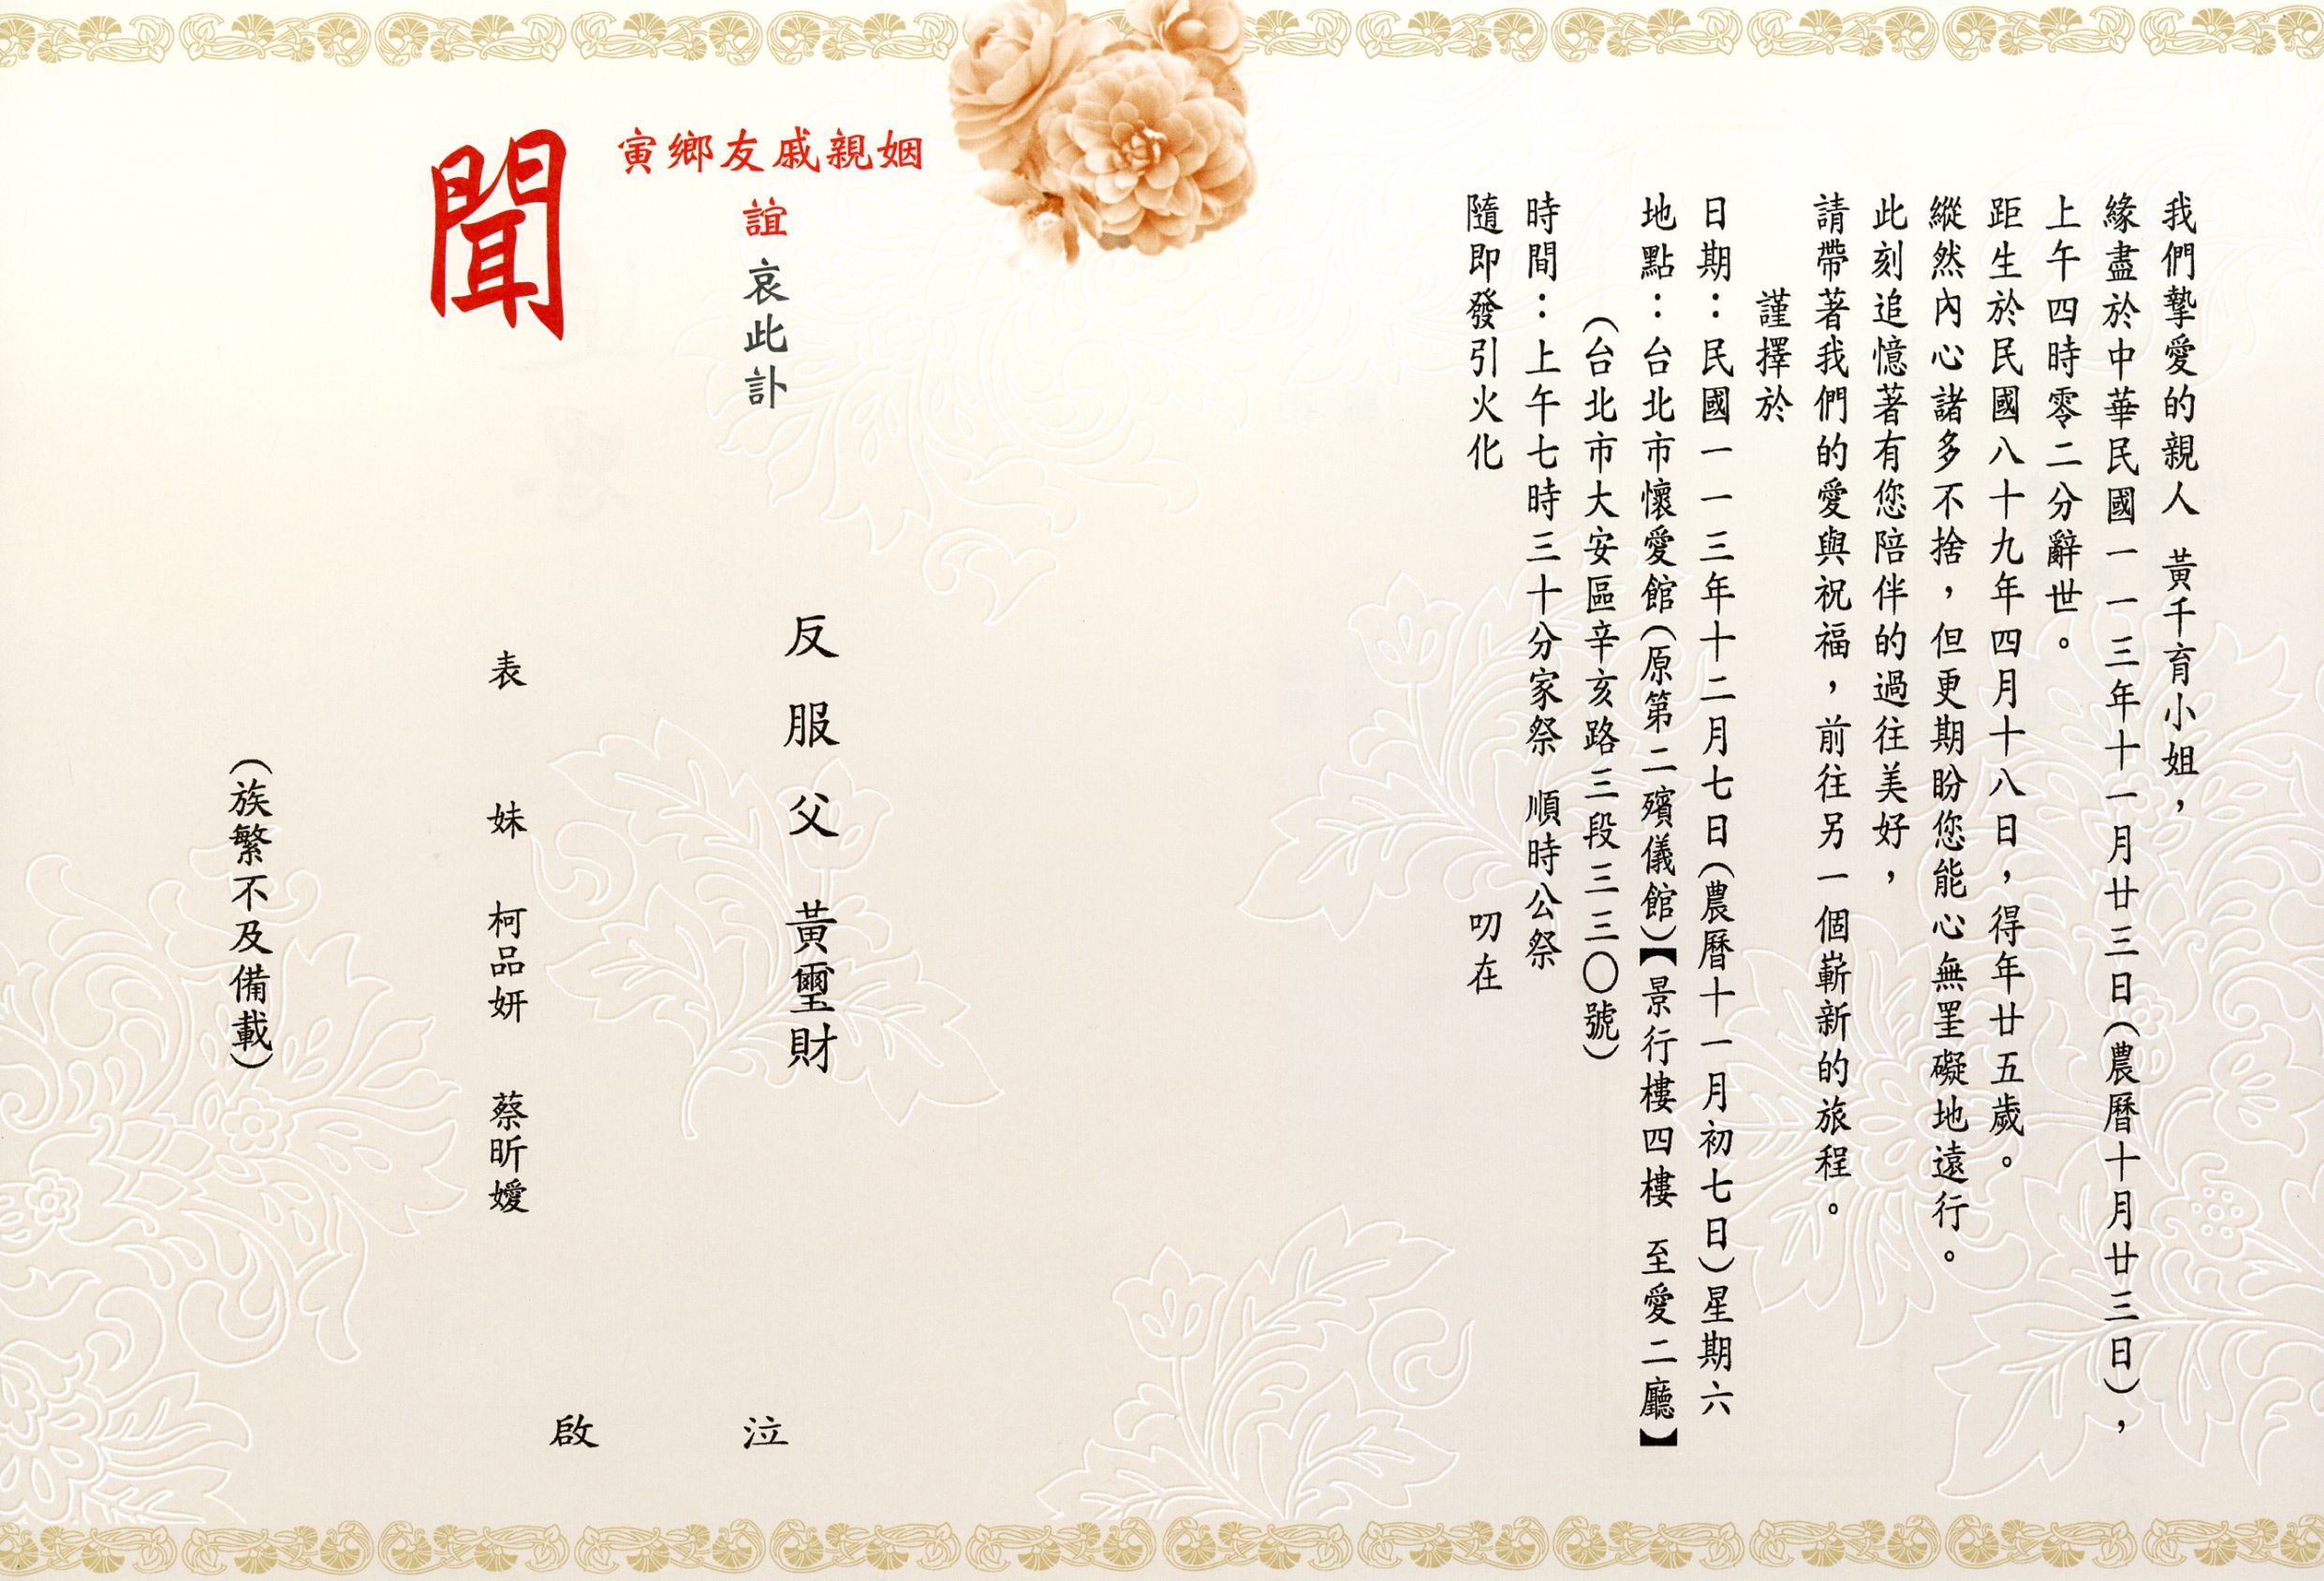 我們摯愛的親人 黃千育小姐，
緣盡於中華民國一一三年十一月廿三日(農曆十月廿三日)，
上午四時零二分辭世。
距生於民國八十九年四月十八日，得年廿五歲。
縱然內心諸多不捨，但更期盼您能心無罣礙地遠行。
此刻追憶著有您陪伴的過往美好，
請帶著我們的愛與祝福，前往另一個嶄新的旅程。
謹擇於
日期：民國一一三年十二月七日(農曆十一月初七日)星期六
地點：台北市懷愛館(原第二殯儀館)【景行樓四樓 至愛二廳】
(台北市大安區辛亥路三段三三〇號)
時間：上午七時三十分家祭 順時公祭
隨即發引火化 叨在
姻親戚友鄉寅
誼哀此訃
聞
反服父 黃璽財
泣
啟
表妹 柯品妍 蔡昕嬡
(族繁不及備載)